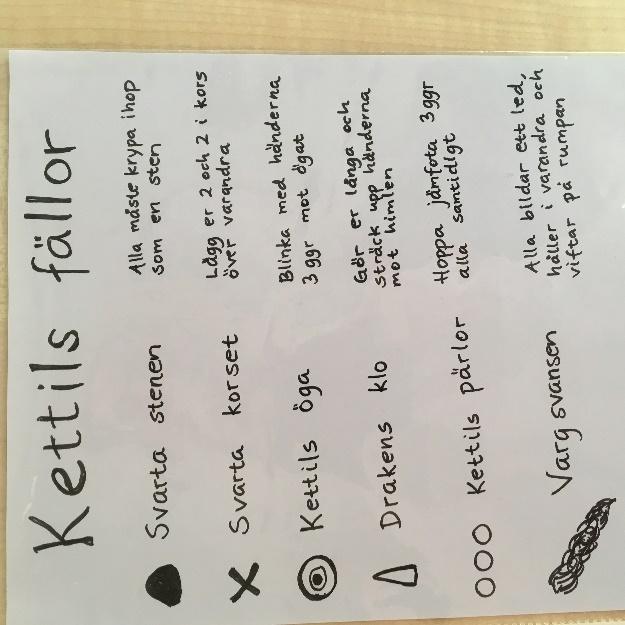 Kettils fällor
Svarta stenen
Alla måste krypa ihop
som en sten
Svarta korset
Lägg er 2 och 2 i kors
över varandra
Kettils öga
Blinka med händerna
3 ggr mot ögat
Drakens klo
Gör er långa och
sträck upp händerna
mot himlen
Kettils pärlor
Hoppa jämfota 3 ggr
alla samtidigt
Vargsvansen
Alla bildar ett led,
håller i varandra och
viftar på rumpan